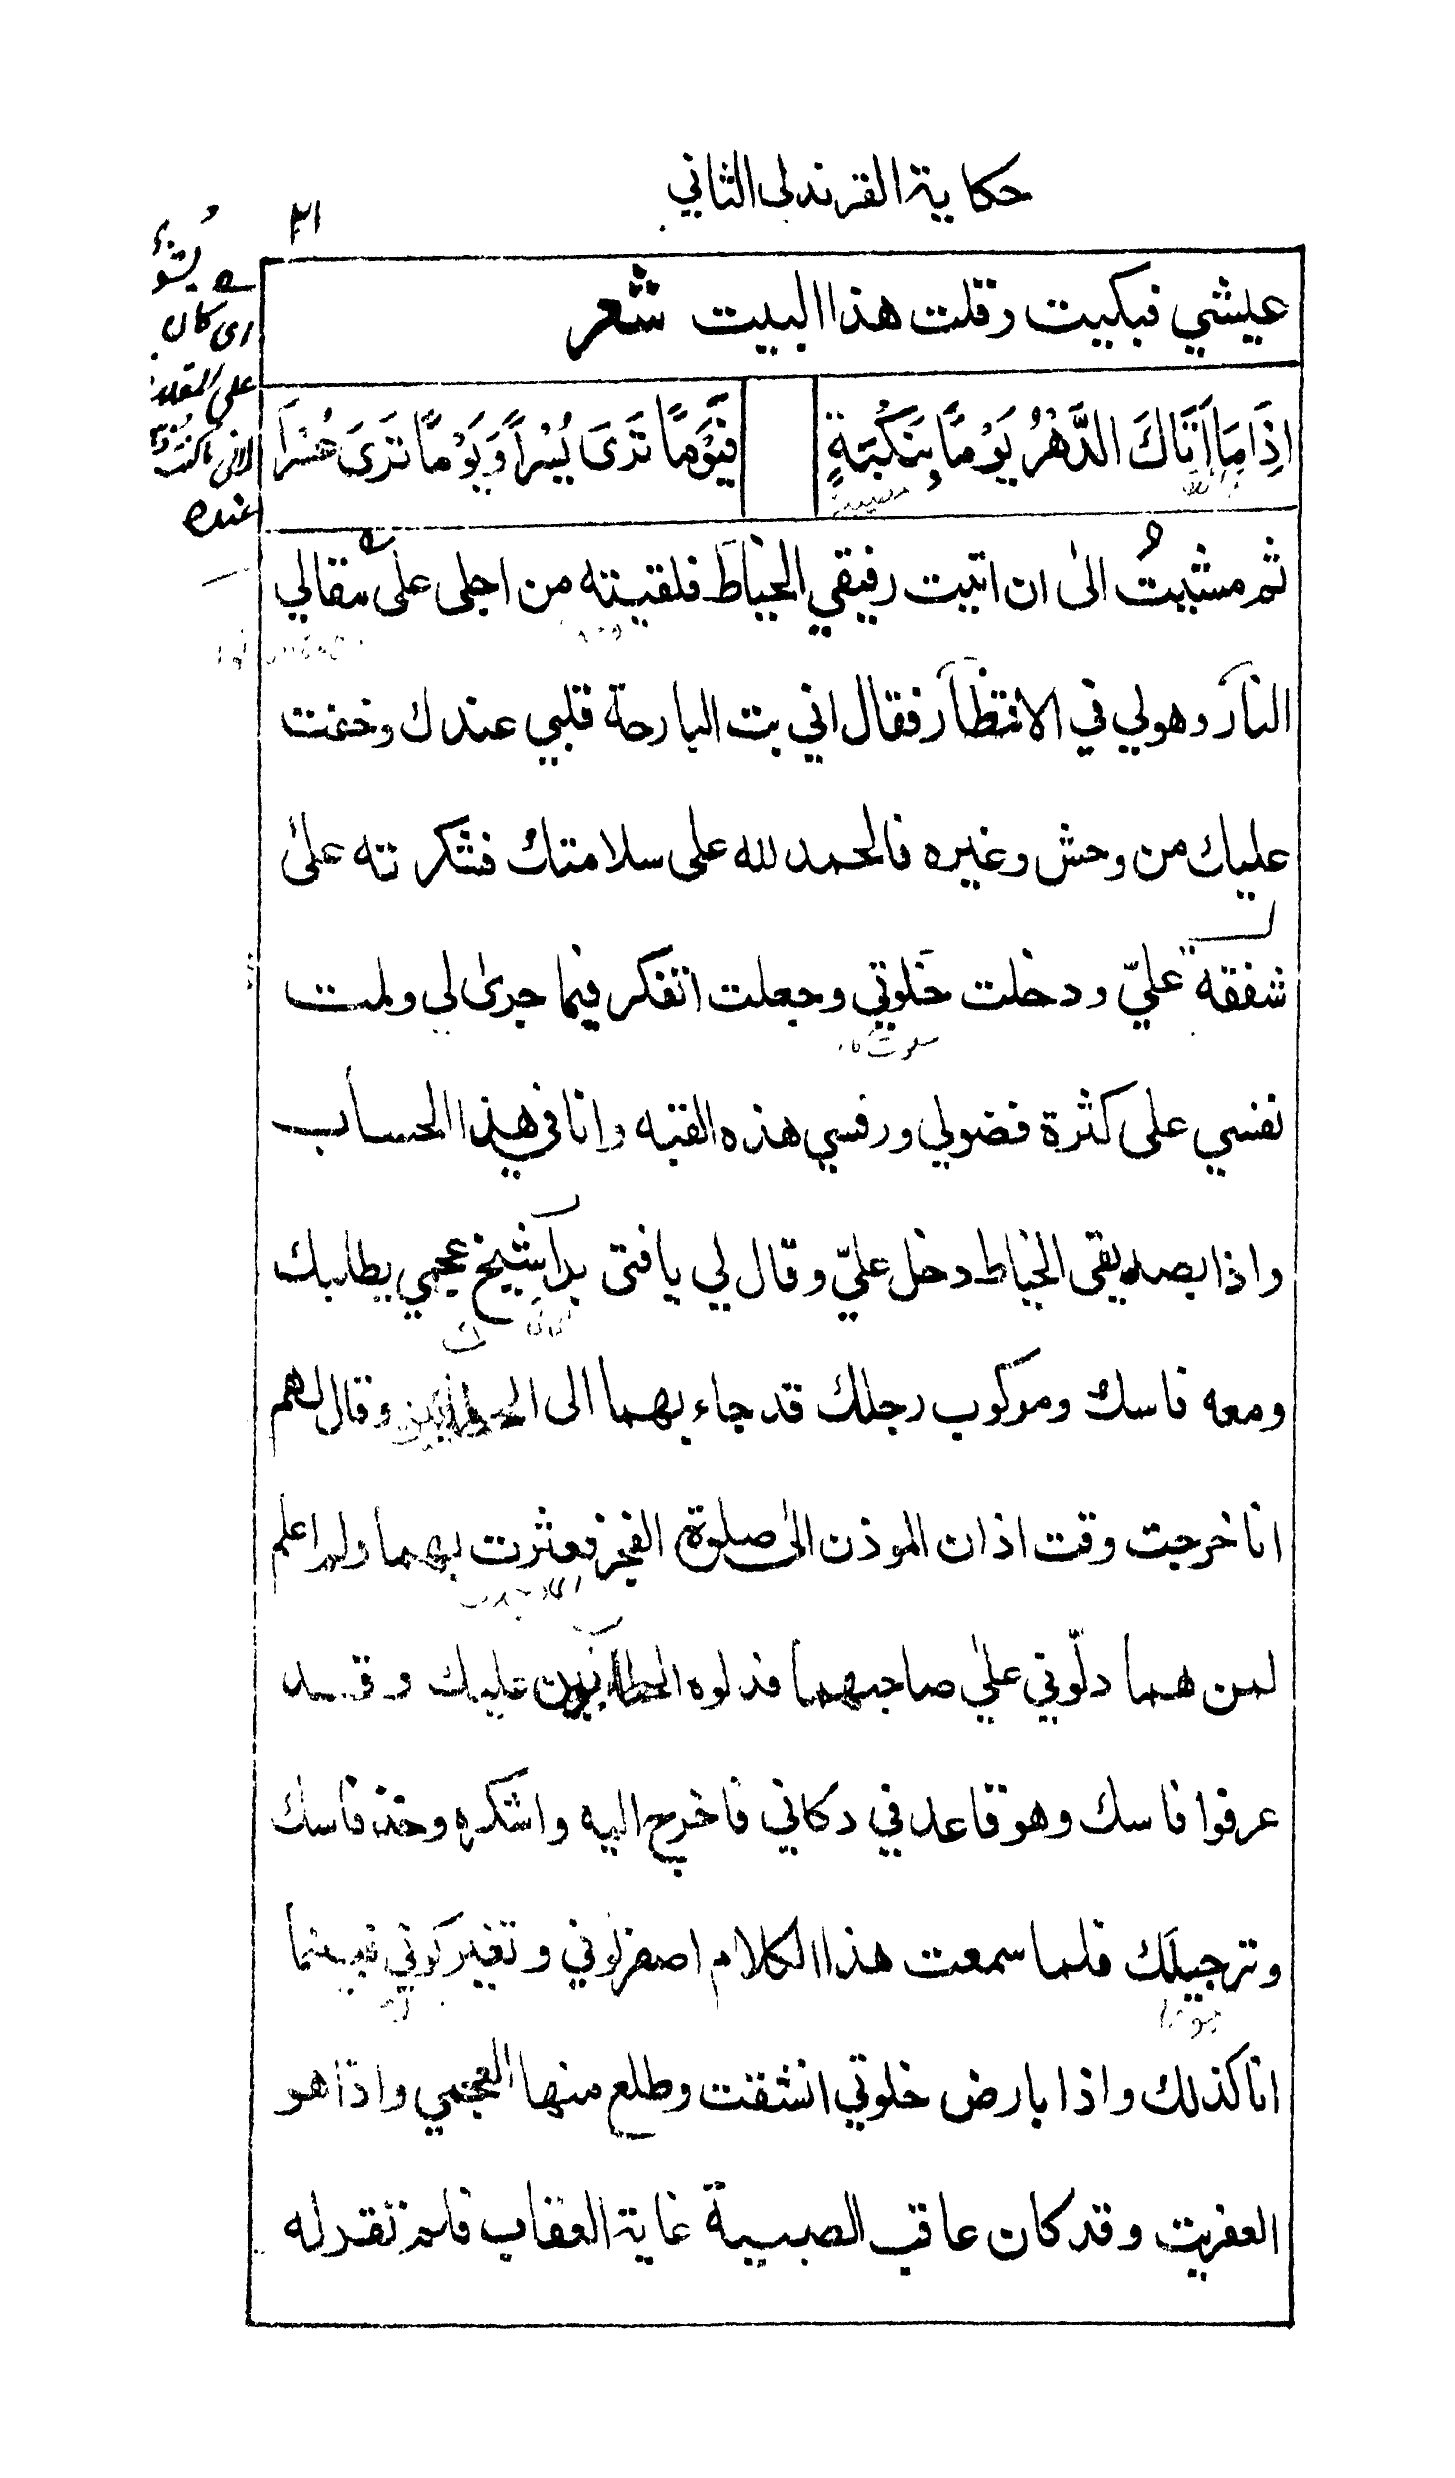 حكاية القرندلي الثاني
٢١
عيشي فبكيت وقلت هذا البيت شعر
اِذَا مَا اَتَاكَ الدَّهْرُ يَوْمًا بِنَكْبَةٍ فَيَوْمًا تَرَى يُسْراً وَيَوْمًا تَرَى عُسْرَا
ثم مشيتُ الىٰ ان اتيت رفيقي الخياط فلقيته من اجلى على مقالي
النار وهولي في الانتظار فقال اني بت البارحة قلبي عندك وخفت
عليك من وحش وغيره فالحمد لله على سلامتك فشكرته علىٰ
شفقته عليّ ودخلت خلوتي وجعلت اتفكر فيما جرىٰ لي ولمت
نفسي على كثرة فضولي ورفسي هذه القبه وانا في هذا الحساب
واذا بصديقى الخياط دخل عليّ وقال لي يا فتى برا شيخ عجمي يطلبك
ومعه فاسك ومركوب رجلك قد جاء بهما الى الخياطين وقال لهم
انا خرجت وقت اذان الموذن الىٰ صلوة الفجر فعثرت بهما ولم اعلم
لمن هما دلّوني علىٰ صاحبهما فدلوه الخياطين عليك وقد
عرفوا فاسك وهو قاعد في دكاني فاخرج اليه واشكره وخذ فاسك
وترجيلك فلما سمعت هذا الكلام اصفر لوني وتغير كوني فبينما
انا كذلك واذا بارض خلوتي انشقت وطلع منها العجمي واذا هو
العفريت وقد كان عاقب الصبية غاية العقاب فلم تقر له
اى كان
على
عنده